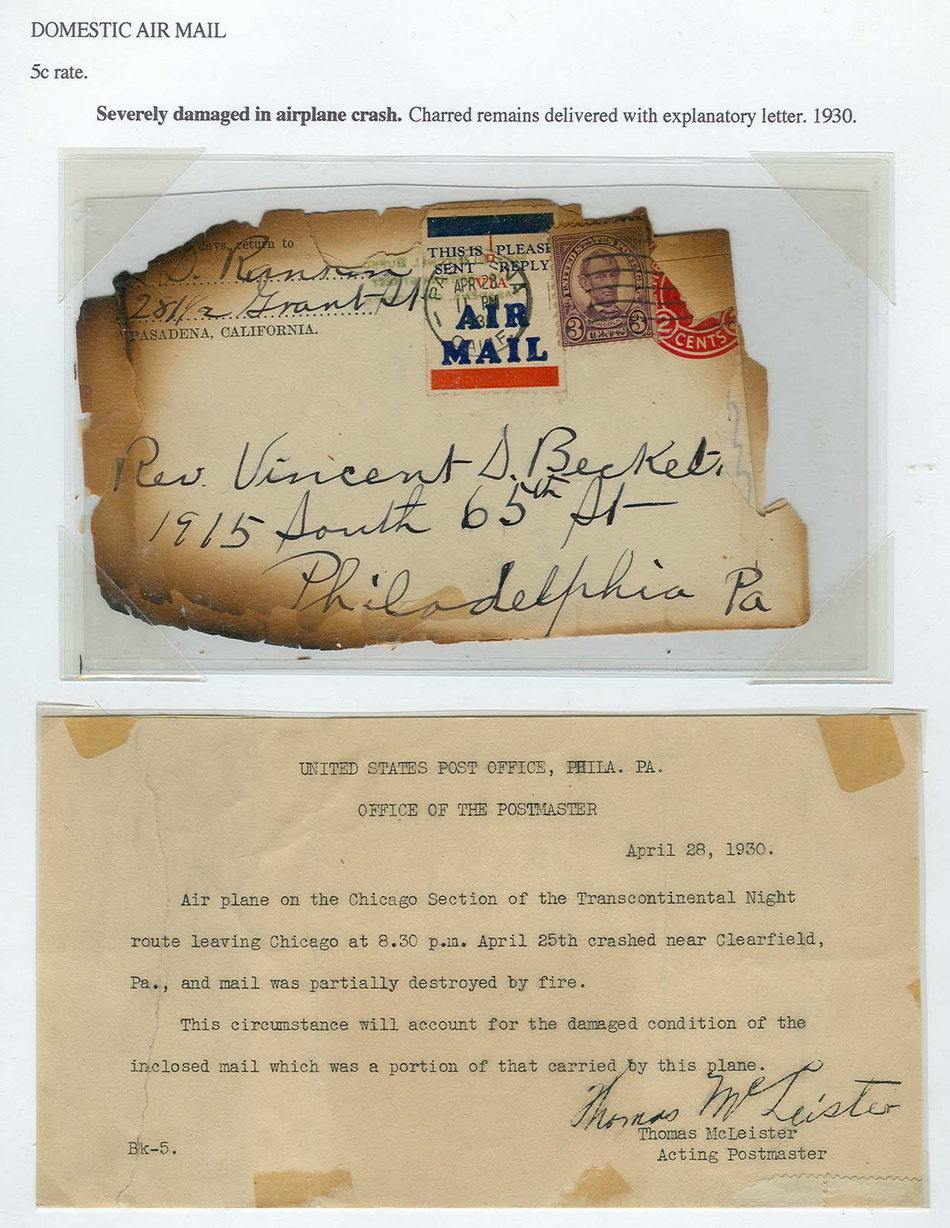 DOMESTIC AIR MAIL
5c rate.
Severely damaged in airplane crash. Charred remains delivered with explanatory letter. 1930.
days, return to
D. Rankin
281½ Grant St
PASADENA, CALIFORNIA.
THIS IS PLEASE
SENT REPLY
VIA
AIR
MAIL
APR
PM
CALIF
UNITED STATES POSTAGE
LINCOLN
3 CENTS 3
2 CENTS 2
Rev. Vincent D. Becket.
1915 South 65th St
Philadelphia Pa
UNITED STATES POST OFFICE, PHILA. PA.
OFFICE OF THE POSTMASTER
April 28, 1930.
Air plane on the Chicago Section of the Transcontinental Night
route leaving Chicago at 8.30 p.m. April 25th crashed near Clearfield,
Pa., and mail was partially destroyed by fire.
This circumstance will account for the damaged condition of the
inclosed mail which was a portion of that carried by this plane.
Thomas McLeister
Thomas McLeister
Acting Postmaster
Bk-5.